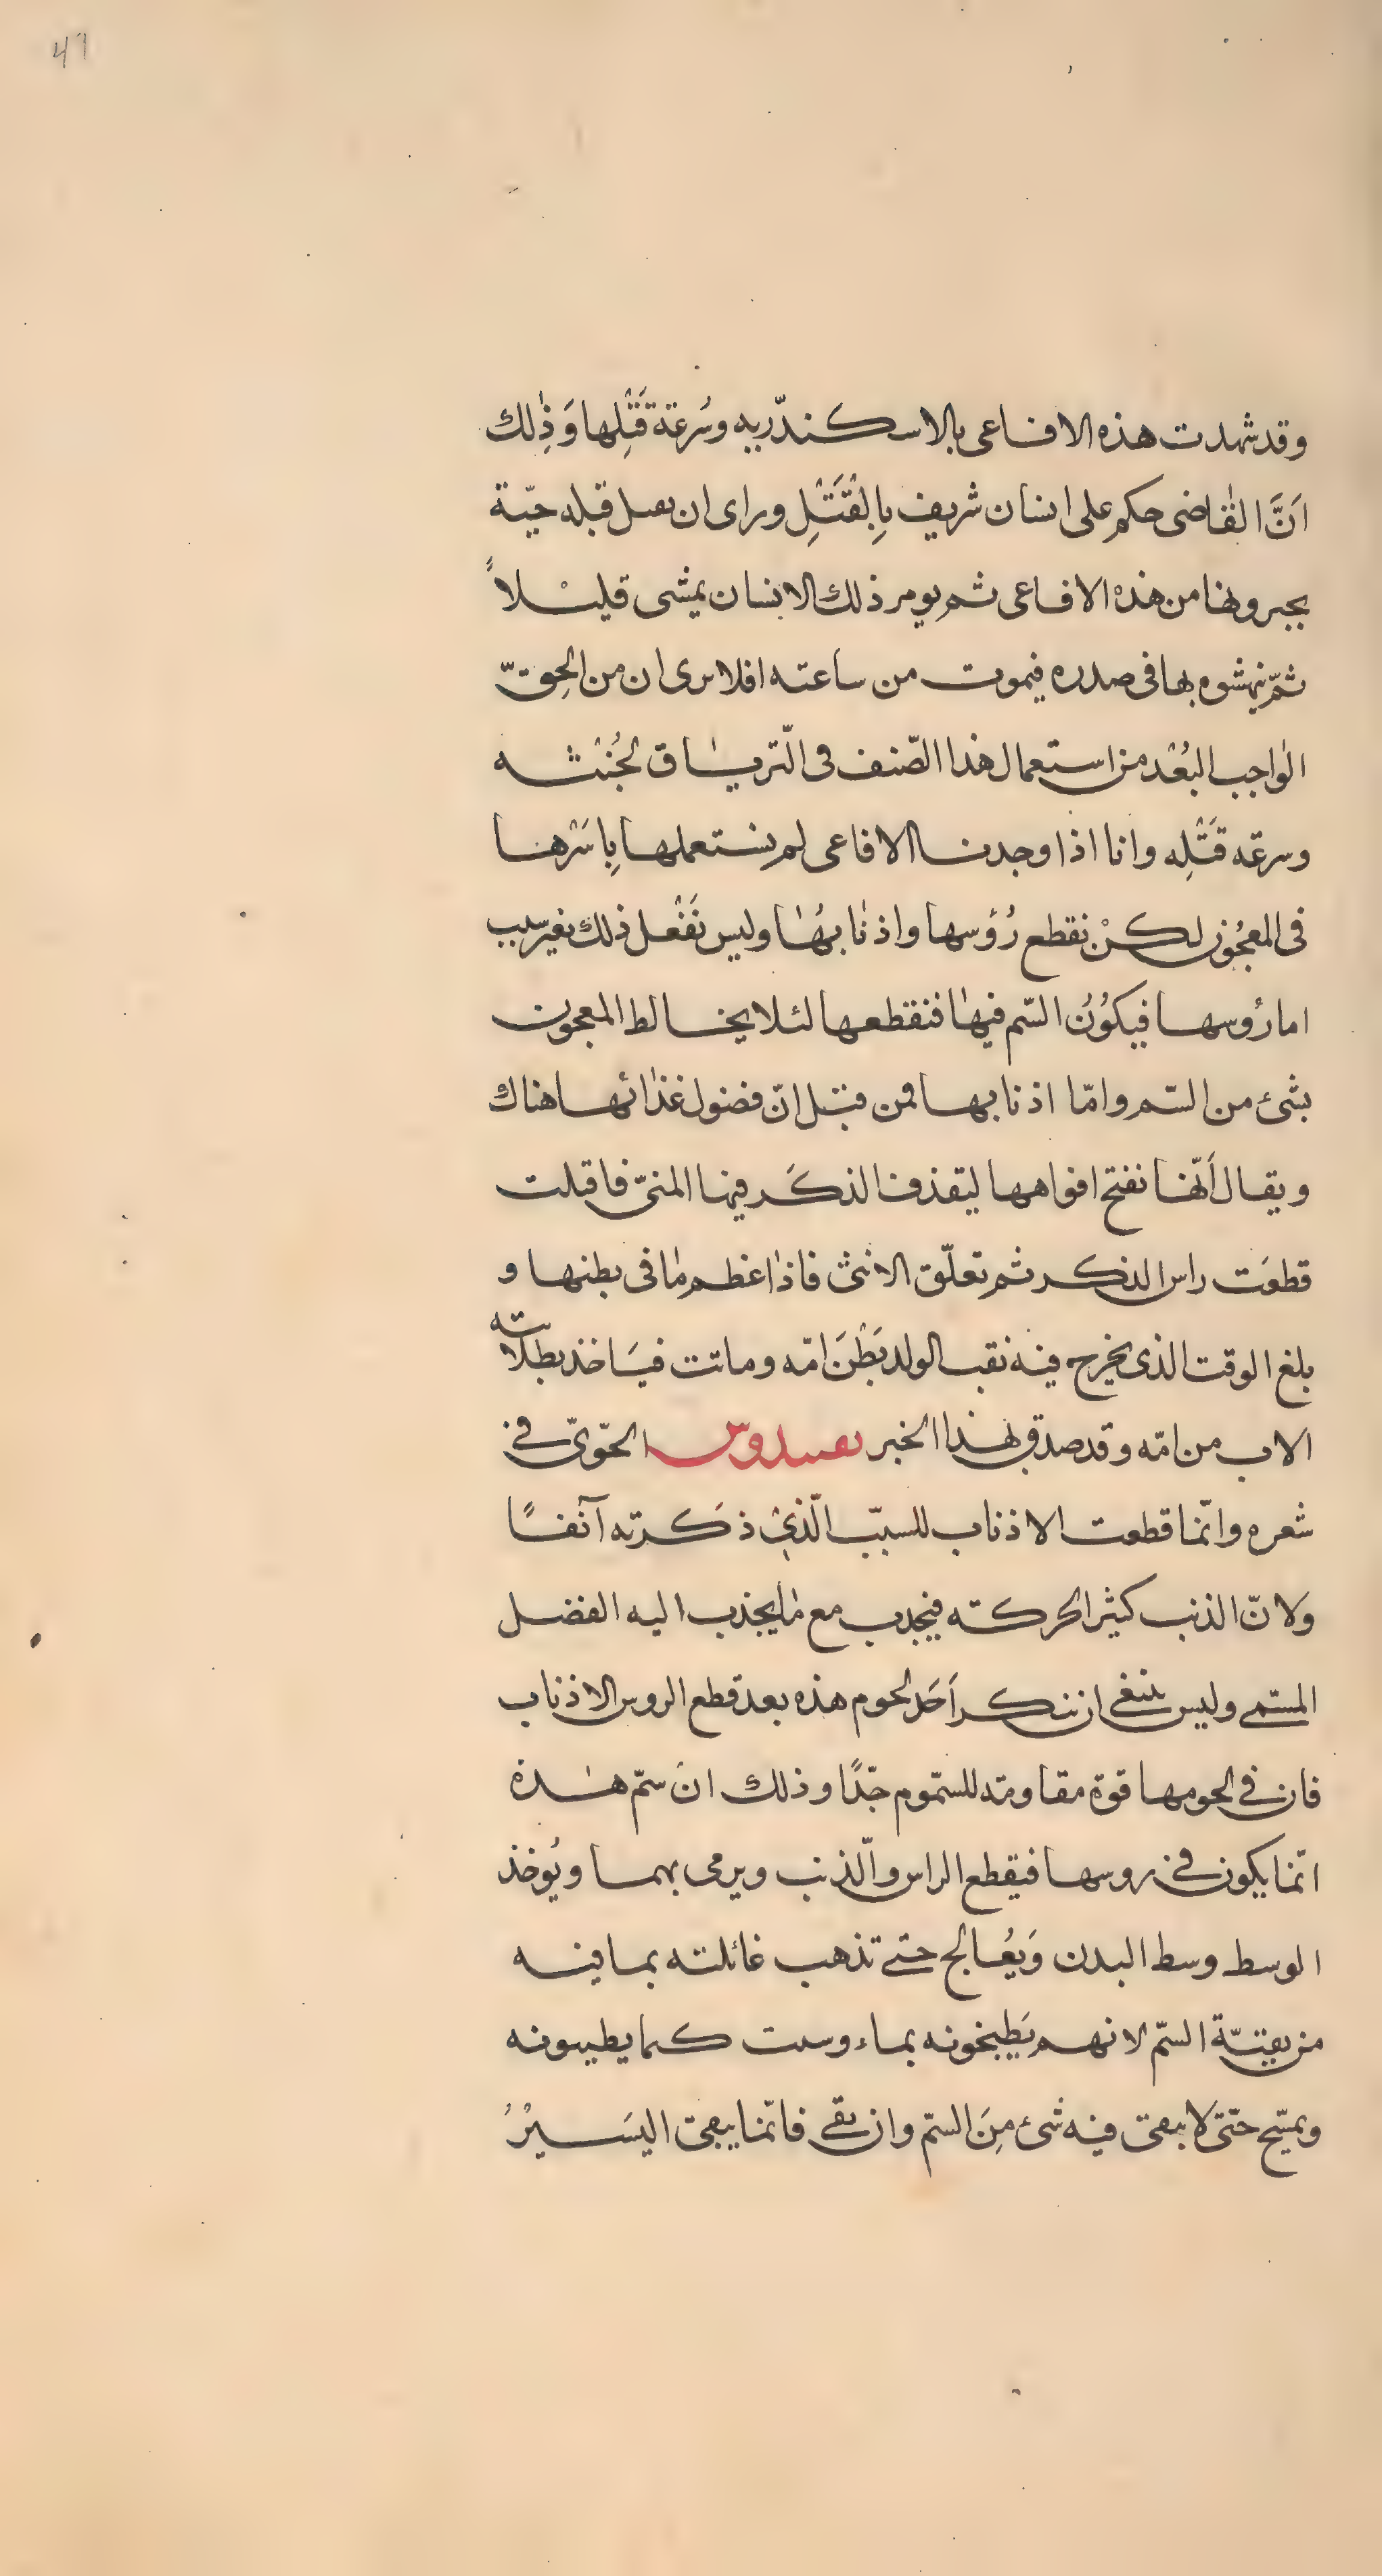 47
وقد شهدت هذه الافاعى بالاسكندّريه وسُرعَة قَتْلِها وَذٰلك
اَنَّ القٰاضى حكم على انسان شريف بِالْقَتْلِ وراى ان قبله حيّة
يجبرونها من هٰذه الافاعى ثم يومر ذلك الانسان يمشى قليْلاً
ثمّ ينهشوه بها فى صدره فيموت من ساعته افلا ىرى ان من الحِقّ
الوٰاجب البُعْد من استعمال هٰذا الصّنف فى الّتريٰاق لخُبْثه
وسرعته قَتْلِه وانا اذا وجدنا الافاعى لم نستعملها بِاَسْرها
فى المعجُون لكنْ نقطع رُؤسها واذنٰابهٰا وليس نَفْعل ذلك بغير سبب
اما رُوسها فيكوُنُ السّم فيهٰا فنقطعها لئلا يخالط المعجون
بشئ من السّم وامّا اذنابها فمن قبل انّ فضول غذٰائها هناك
ويقال اَنّهٰا تفتح افواهها ليقذف الذكَر فيهٰا المنىّ فاقبلت
قطعَت راس الذكر ثم تعلّق الانثى فاذٰا عظم مٰا فى بطنها و
بلغ الوقت الذى يخرج فيه نقب الولد بَطْنَ امّه وماتت فيَاخذ بطلاٮته
الاب من امّه وقد صدق بهٰذا الخبر الحّوىّ فى
شعره وانّما قطعت الاذناب للسببّ الّذىْ ذَكرته آنفًا
وَلانّ الذنب كثير الحركته فيجذب مع مٰا يجذب اليه الفضل
المسّمى وليس ينبغى ان ننكر اَحَد لحوم هذه بعد قطع الروس الاذناب
فان فى لحومها قوّة مقاومته للسمّوم جّدًا وذلك انْ سمّ هٰذه
انّما يكون فى روسها فيقطع الراس والّذنب ويرمى بهما ويُوخذ
الوسط وسط البدن وَيُعالج حتى تذهب غائلته بما فيه
من بقيّة السّم لانهم يَطبخونه بماء وسبت كما يطيبونه
حتّى لا يبقى فيه شئ مِنَ السّم وان بقى فانّما يبقى اليَسيْرُ